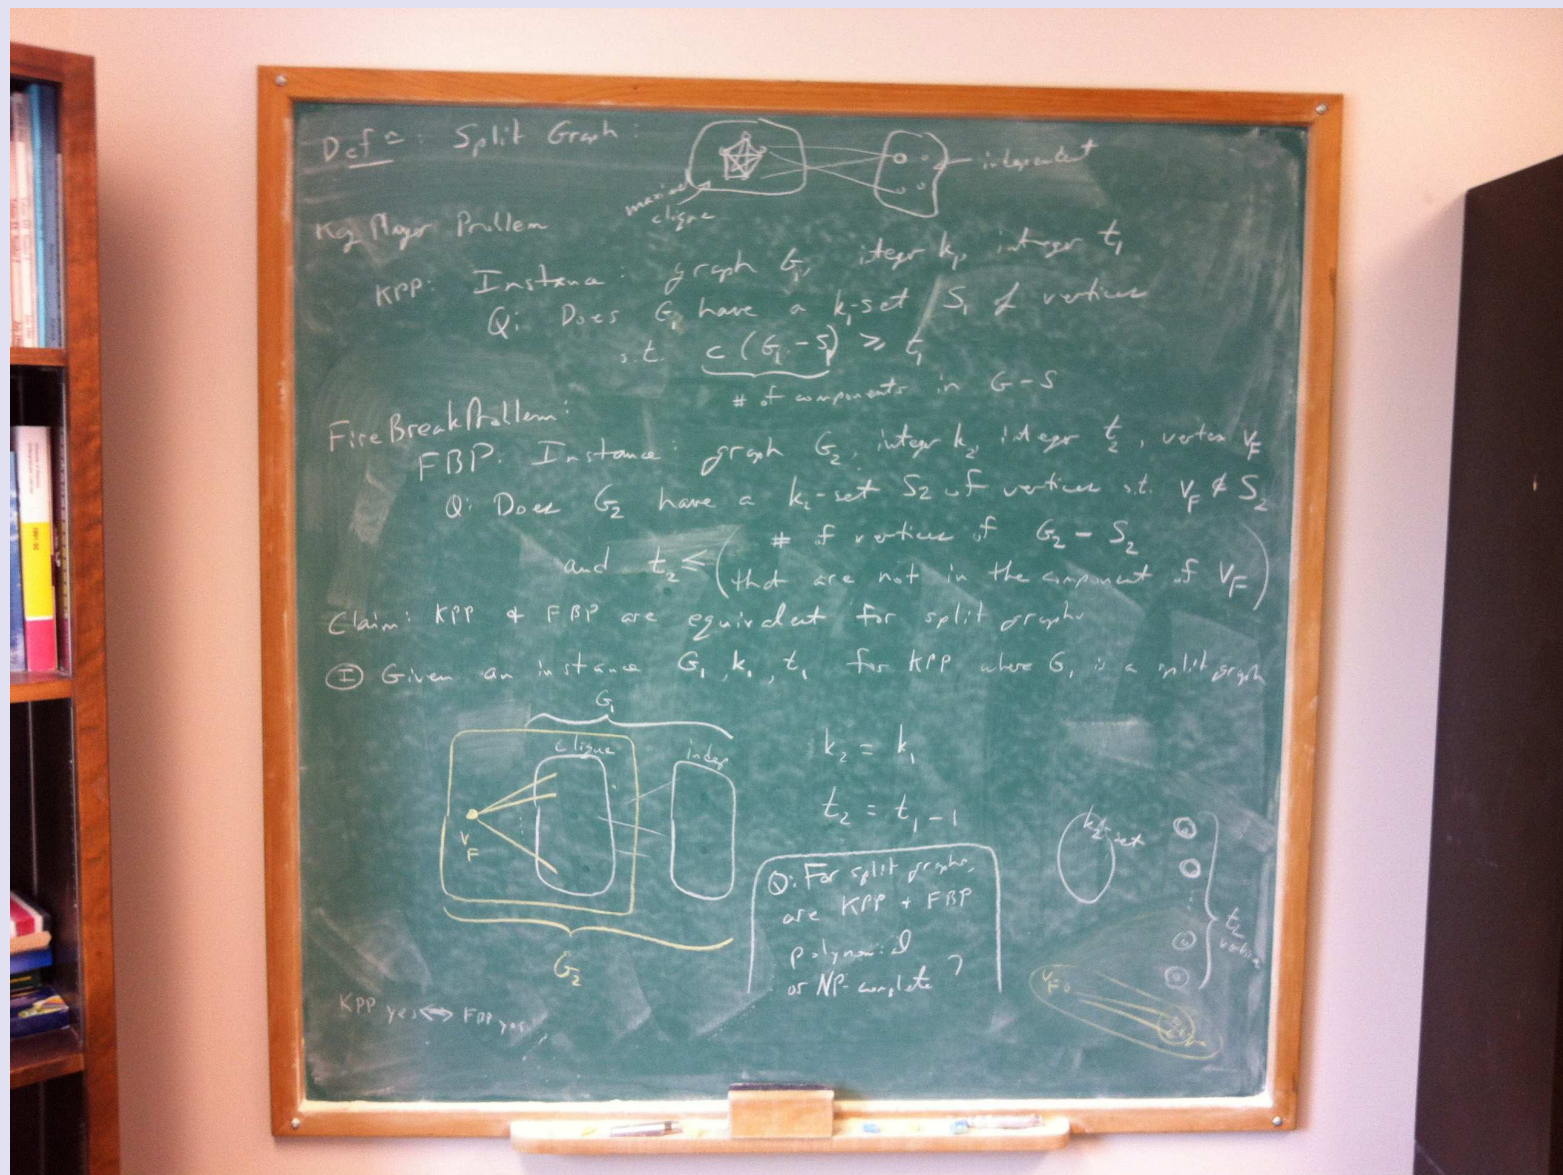 Defn: Split Graph:
maximal
clique
independent
Key Player Problem
KPP: Instance: graph G₁, integer k₁, integer t₁
Q: Does G₁ have a k₁-set S₁ of vertices
s.t. c(G₁ - S₁) ≥ t₁
# of components in G-S
Fire Break Problem:
FBP: Instance: graph G₂, integer k₂, integer t₂, vertex V_F
Q: Does G₂ have a k₂-set S₂ of vertices s.t. V_F ∉ S₂
and t₂ ≤ (# of vertices of G₂ - S₂
that are not in the component of V_F)
Claim: KPP & FBP are equivalent for split graphs
Ⓘ Given an instance G₁, k₁, t₁ for KPP where G₁ is a split graph
G₁
clique
indep
V_F
G₂
k₂ = k₁
t₂ = t₁ - 1
Q: For split graphs,
are KPP + FBP
polynomial
or NP-complete?
k₂-set
t₂
vertices
V_F
KPP yes ⟺ FBP yes